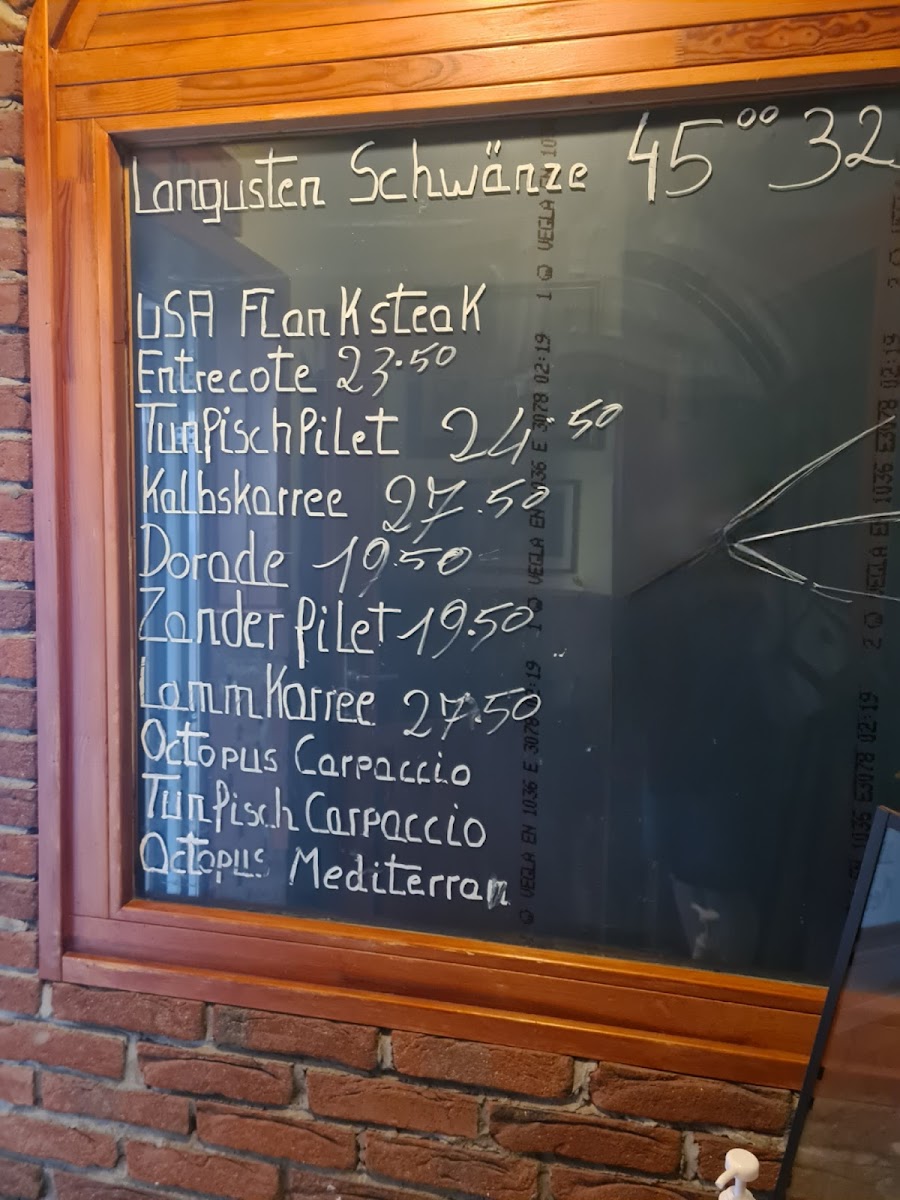 Langusten Schwänze 45⁰⁰ 32
USA Flanksteak
Entrecote 23.50
Tunfischfilet 24.50
Kalbskarree 27.50
Dorade 19.50
Zanderfilet 19.50
Lammkarree 27.50
Octopus Carpaccio
Tunfisch Carpaccio
Octopus Mediterran
1 VEGLA EN 1036 E 3078 02:19
2 VEGLA EN 1036 E3078 02:19